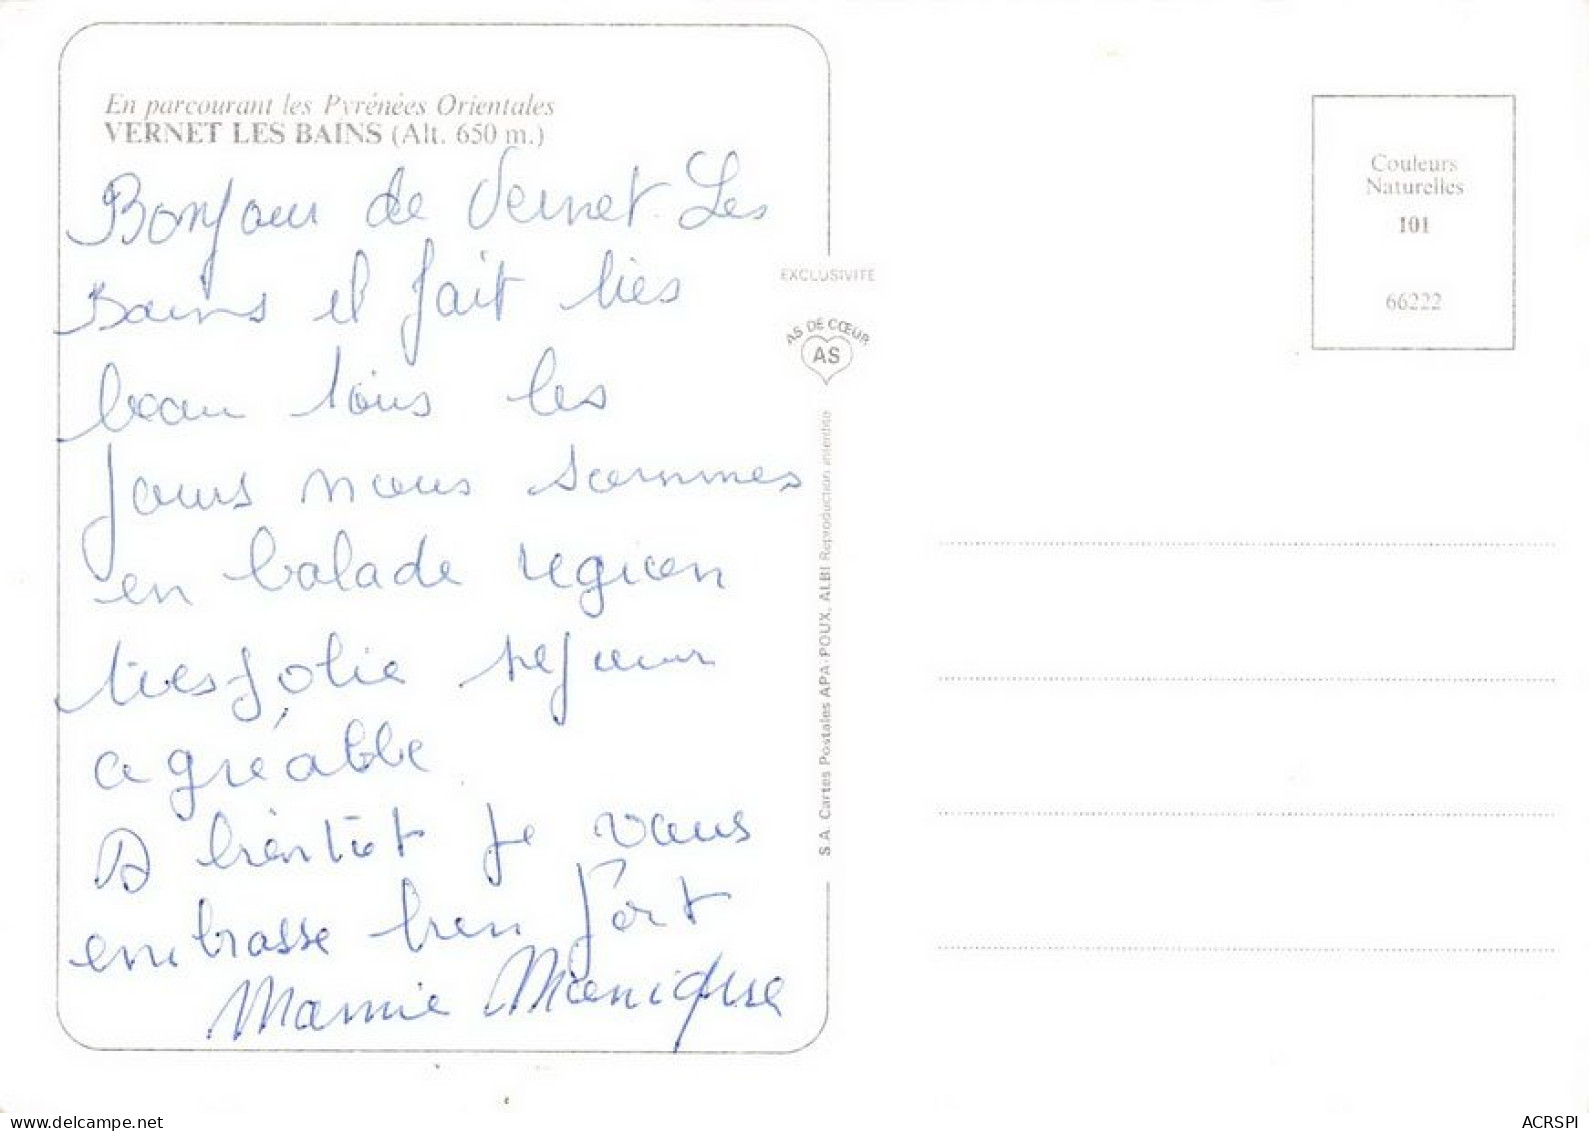 En parcourant les Pyrénées Orientales
VERNET LES BAINS (Alt. 650 m.)
Bonjour de Vernet. Les
Bains il fait très
beau tous les
jours nous sommes
en balade region
tres jolie sejour
agréable
A bientôt je vous
embrasse bien fort
Mamie Monique
EXCLUSIVITE
AS DE CŒUR
AS
S.A. Cartes Postales APA-POUX, ALBI Reproduction interdite
Couleurs
Naturelles
101
66222
www.delcampe.net
ACRSPI